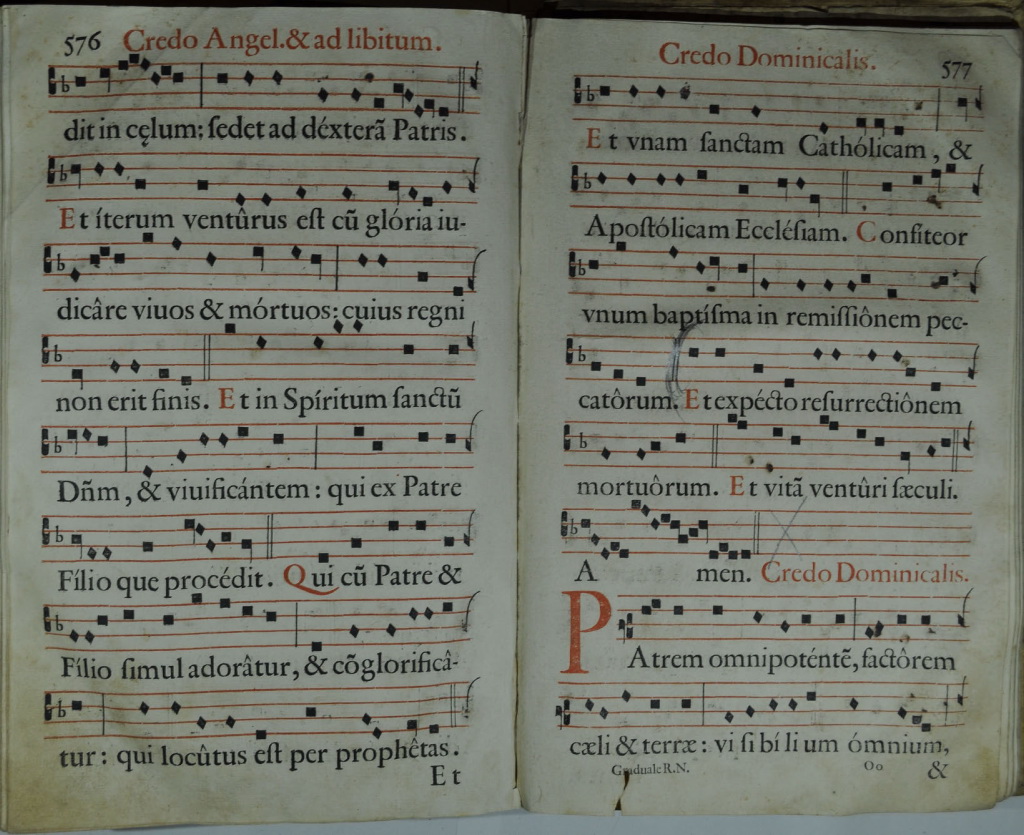 576 Credo Angel.& ad libitum.
dit in cęlum: ſedet ad déxterã Patris.
Et íterum ventûrus eſt cũ glória iu-
dicâre viuos & mórtuos: cuius regni
non erit finis. Et in Spíritum ſanctũ
Dñm, & viuificántem: qui ex Patre
Fílio que procédit. Qui cũ Patre &
Fílio ſimul adorâtur, & cõglorificâ-
tur: qui locûtus eſt per prophêtas.
Et
Credo Dominicalis. 577
Et vnam ſanctam Cathólicam, &
Apoſtólicam Eccléſiam. Confiteor
vnum baptíſma in remiſſiônem pec-
catôrum. Et expécto reſurrectiônem
mortuôrum. Et vitã ventûri ſæculi.
A men. Credo Dominicalis.
PAtrem omnipoténtẽ, factôrem
cæli & terræ: vi ſi bí li um ómnium,
Graduale R.N. Oo &